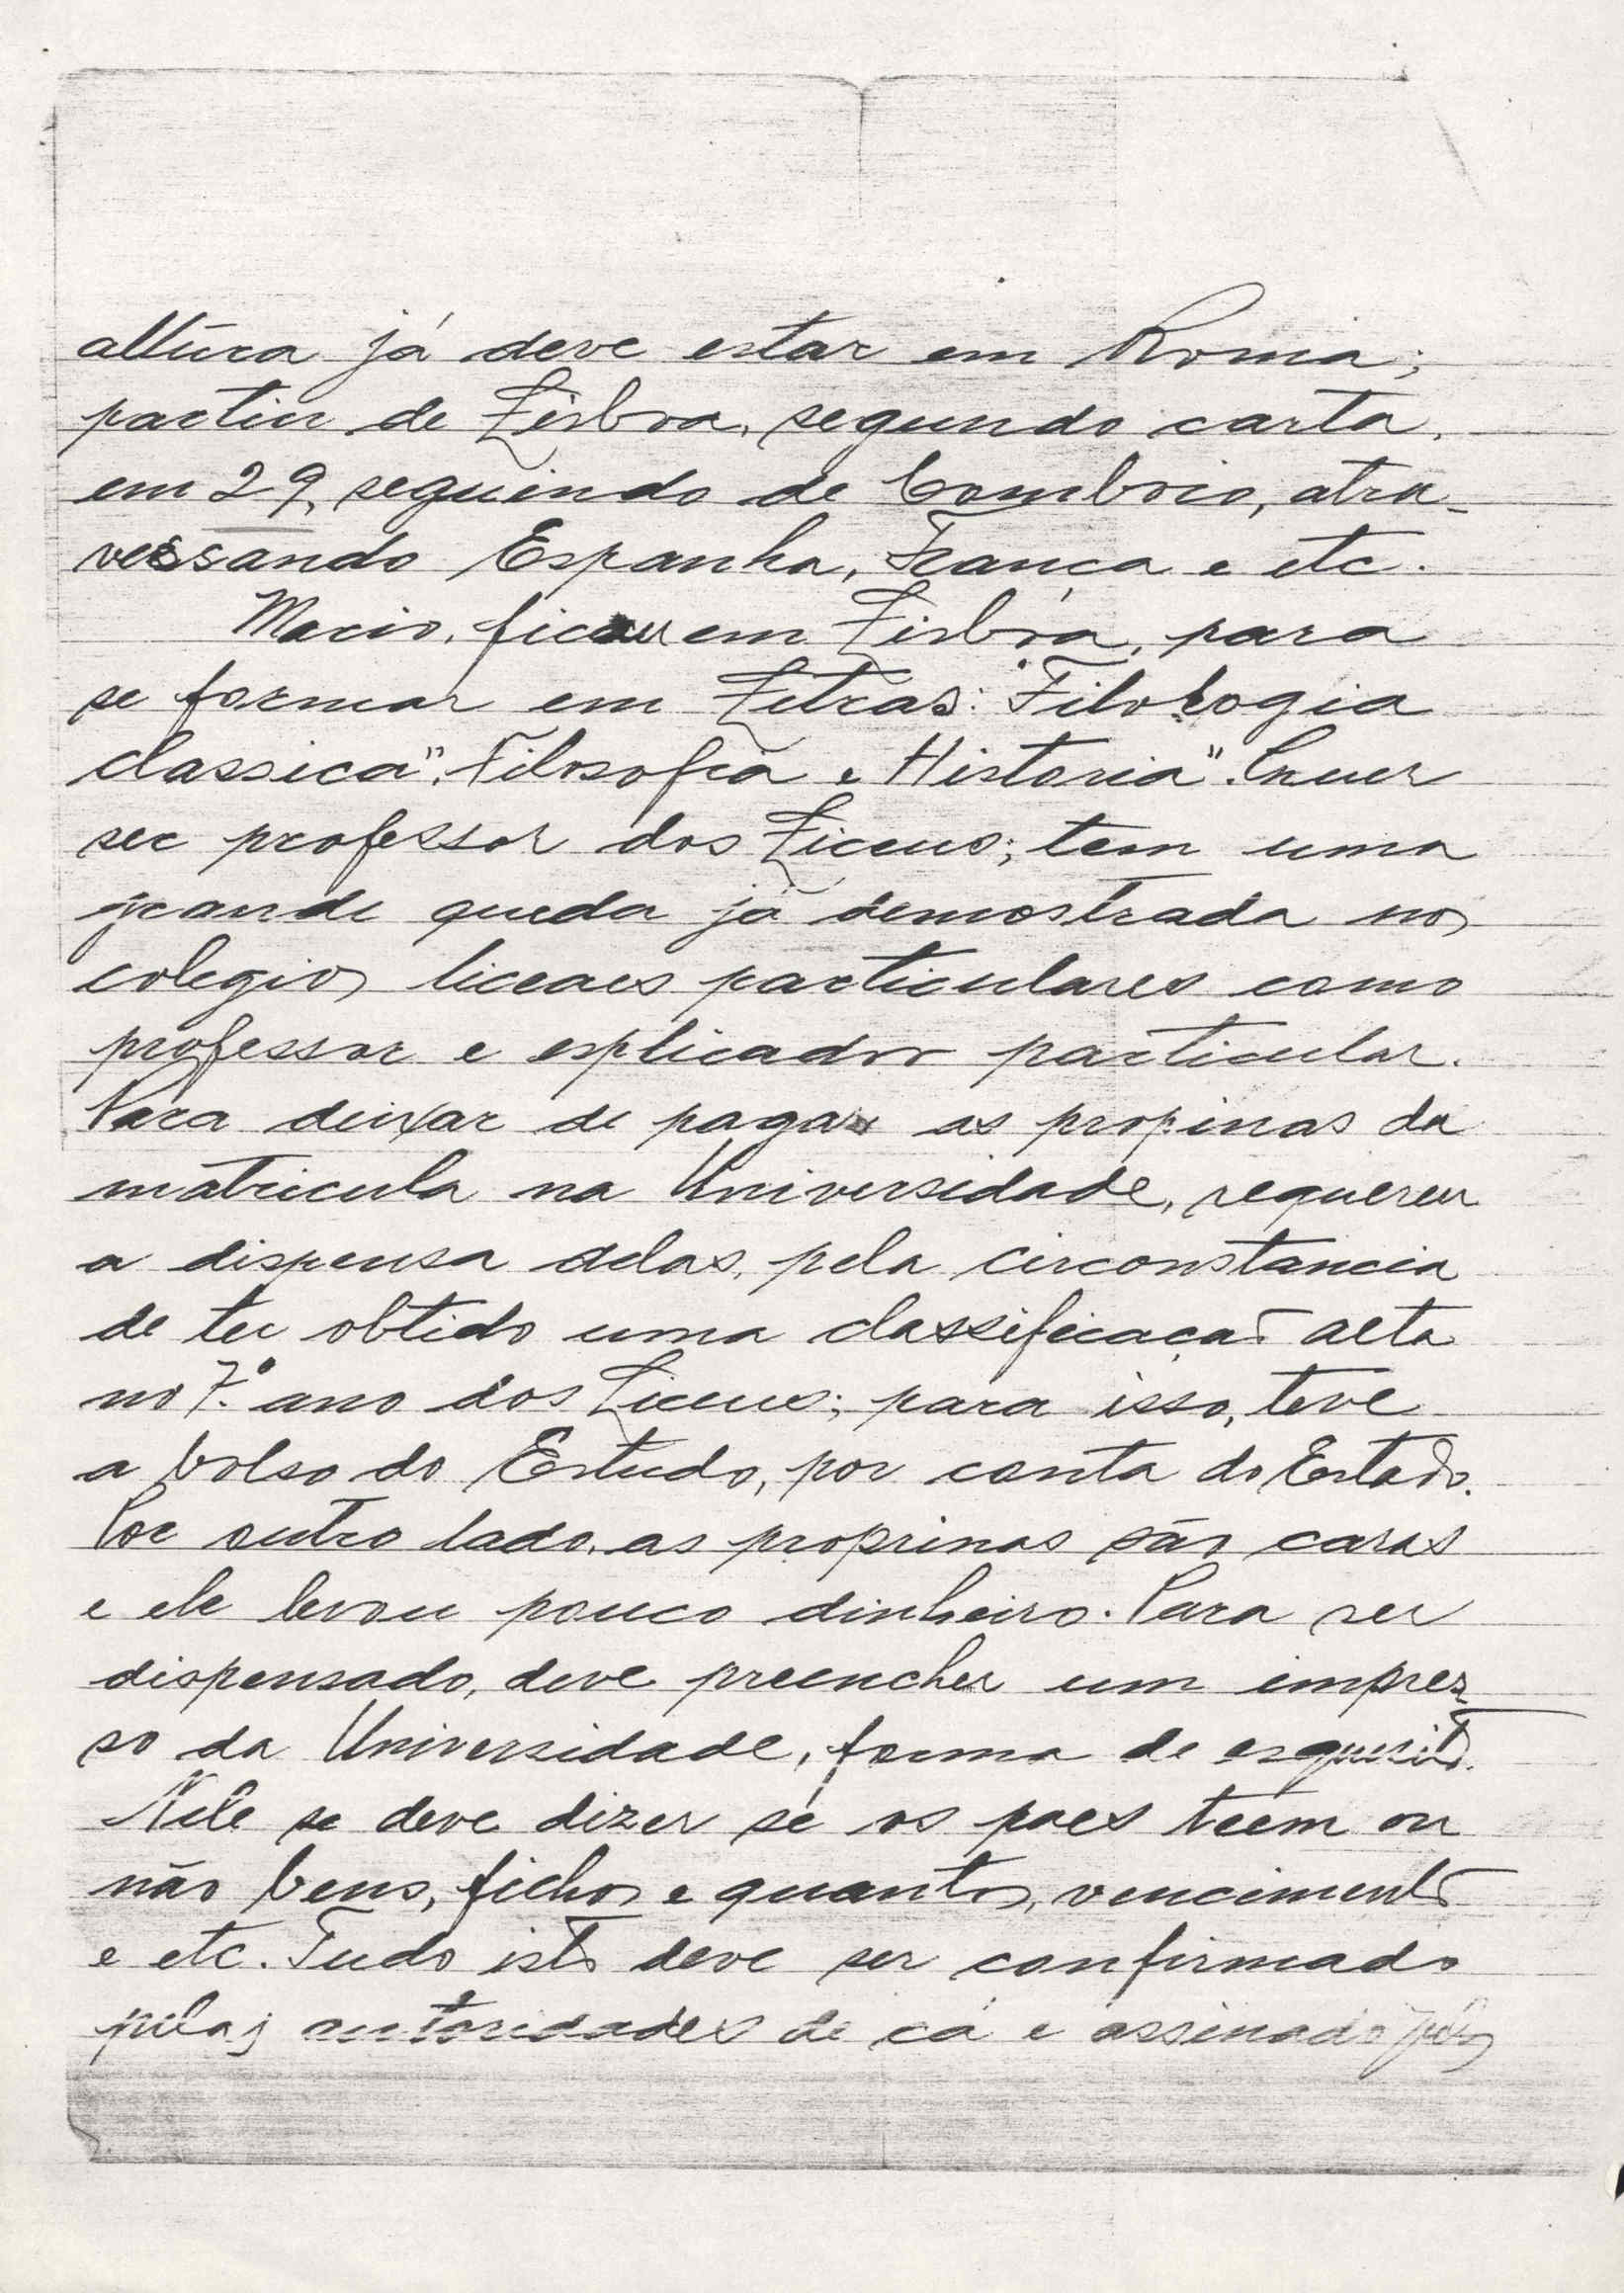 altura já deve estar em Roma;
partiu de Lisboa, segundo carta,
em 29, seguindo de Comboio, atra-
vessando Espanha, França e etc.
Mario, ficou em Lisbôa, para
se formar em Letras: "Filologia
classica", "Filosofia e Historia". Quer
ser professor dos Liceus; tem uma
grande queda já demostrada nos
colegios liceaes particulares como
professor e esplicador particular.
Para deixar de pagar as propinas da
matricula na Universidade, requereu
a dispensa delas, pela circonstancia
de ter obtido uma classificacão alta
no 7.º ano dos Liceus; para isso, teve
a bolsa do Estudo, por conta do Estado.
Por outro lado, as proprinas são caras
e ele levou pouco dinheiro. Para ser
dispensado, deve preencher um impres-
so da Universidade, forma de
Nele se deve dizer se os paes teem ou
não bens, filhos e quantos, vencimento
e etc. Tudo isto deve ser confirmado
pelas autoridades de cá e assinado pelos